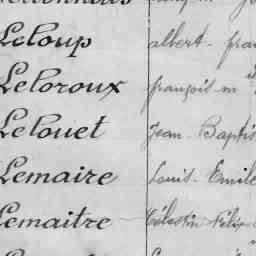 Leloup albert - fran
Leloroux françois m
Lelouet Jean - Baptis
Lemaire Louis - Emile
Lemaitre Célestin Félix